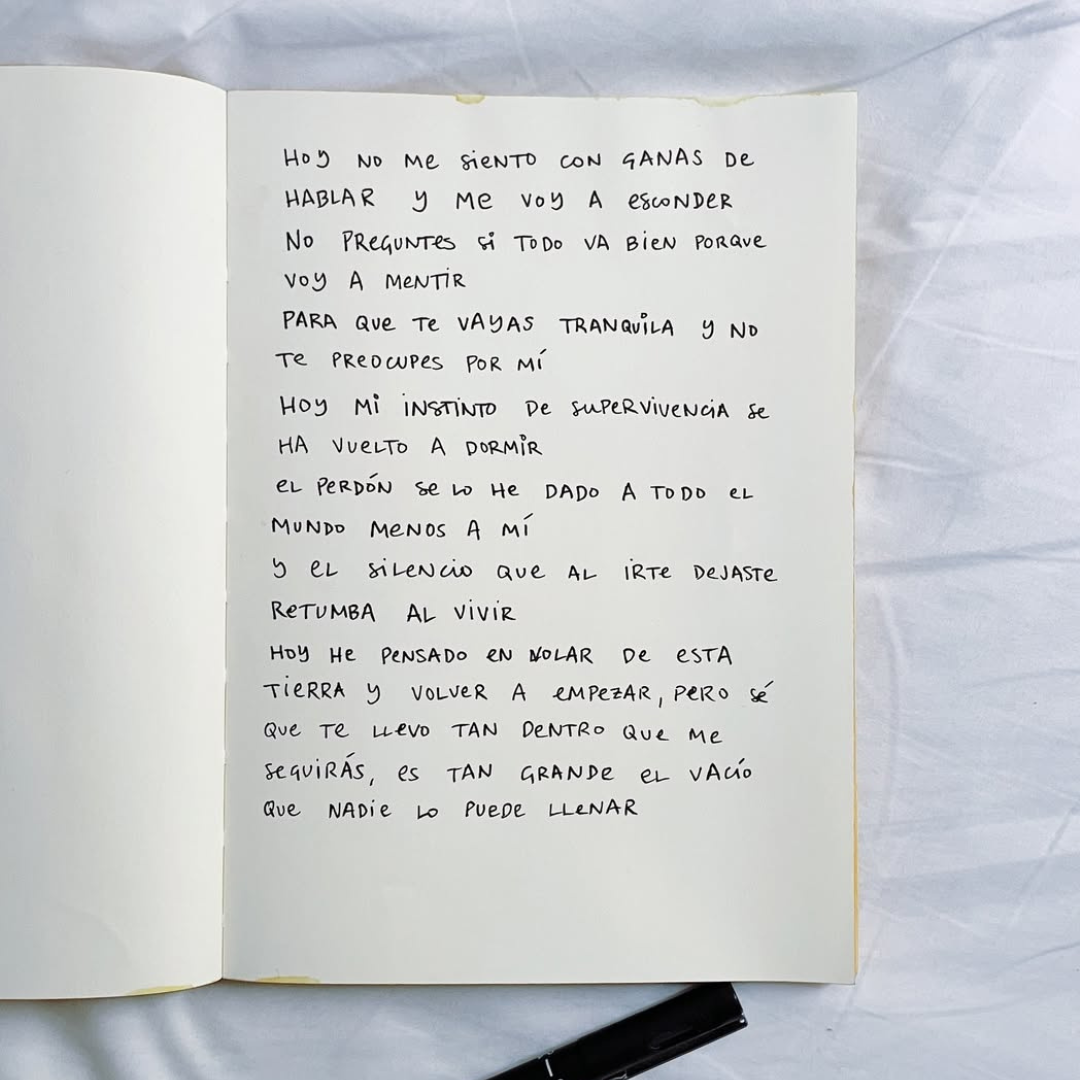 HOY NO ME SIENTO CON GANAS DE
HABLAR Y ME VOY A ESCONDER
NO PREGUNTES SI TODO VA BIEN PORQUE
VOY A MENTIR
PARA QUE TE VAYAS TRANQUILA Y NO
TE PREOCUPES POR MÍ
HOY MI INSTINTO DE SUPERVIVENCIA SE
HA VUELTO A DORMIR
EL PERDÓN SE LO HE DADO A TODO EL
MUNDO MENOS A MÍ
Y EL SILENCIO QUE AL IRTE DEJASTE
RETUMBA AL VIVIR
HOY HE PENSADO EN VOLAR DE ESTA
TIERRA Y VOLVER A EMPEZAR, PERO SÉ
QUE TE LLEVO TAN DENTRO QUE ME
SEGUIRÁS, ES TAN GRANDE EL VACÍO
QUE NADIE LO PUEDE LLENAR